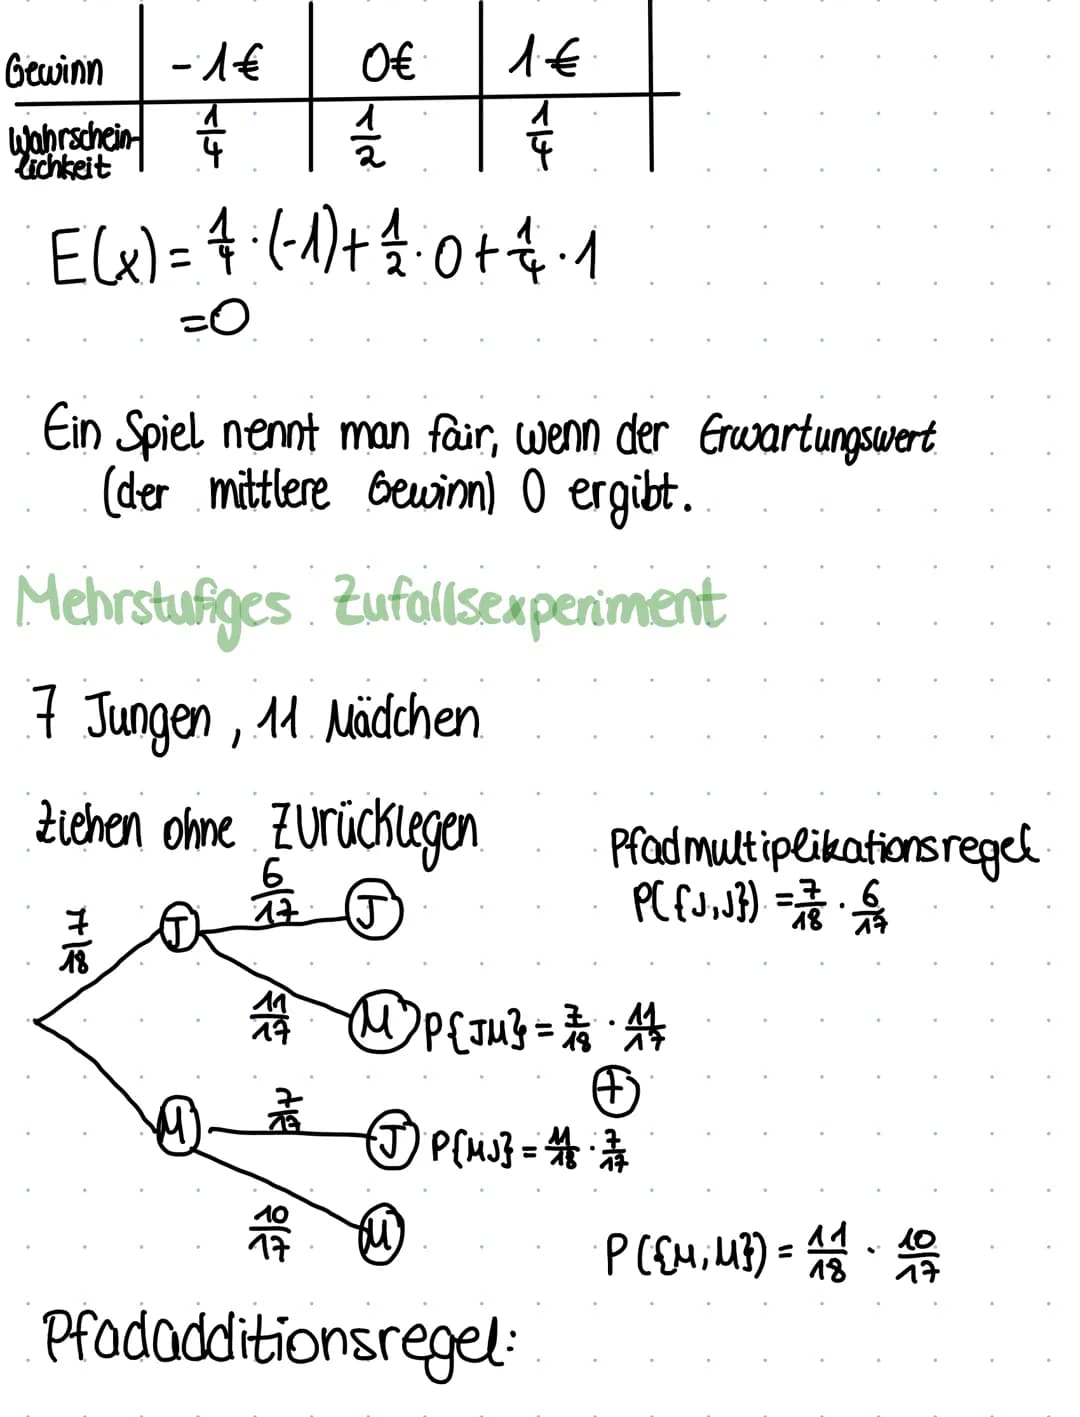 Gewinn -1€ 0€ 1€
Wahrschein-
lichkeit 1/4 1/2 1/4
E(x) = 1/4 · (-1) + 1/2 · 0 + 1/4 · 1
=0
Ein Spiel nennt man fair, wenn der Erwartungswert
(der mittlere Gewinn) 0 ergibt.
Mehrstufiges Zufallsexperiment
7 Jungen, 11 Mädchen
Ziehen ohne Zurücklegen
Pfadmultiplikationsregel
P({J,J}) = 7/18 · 6/17
7/18 J 6/17 J
11/17 M P{JM} = 7/18 · 11/17
+
M 7/17 J P{MJ} = 11/18 · 7/17
10/17 M
P({M,M}) = 11/18 · 10/17
Pfadadditionsregel: